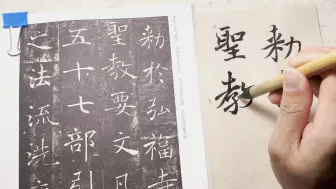 勑
聖教
勑於弘福寺
聖教要文凡
五十七部引
之法流洗